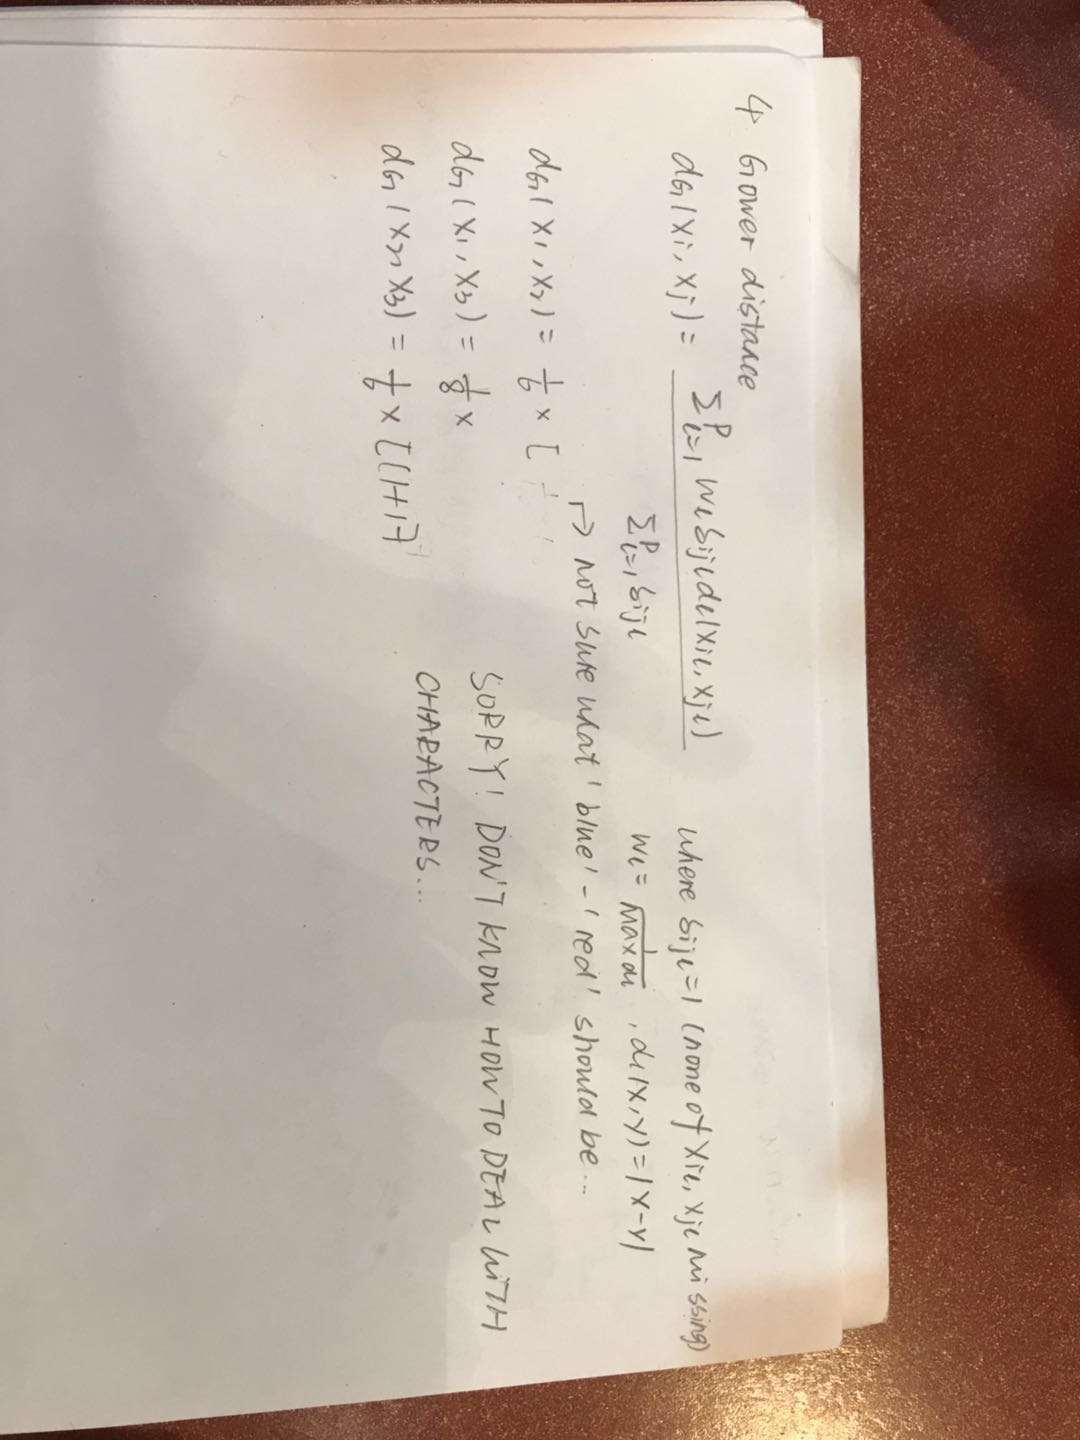 4. Gower distance
dG(xi, xj) = Σ^p_{l=1} wl δijl dl(xil, xjl) / Σ^p_{l=1} δijl
where δijl = 1 (none of xil, xjl missing)
wl = 1/max dl , dl(x,y) = |x-y|
↳ not sure what 'blue' - 'red' should be...
dG(x1, x2) = 1/6 × [
dG(x1, x3) = 1/8 ×
dG(x2, x3) = 1/6 × [(1+1)
SORRY! DON'T KNOW HOW TO DEAL WITH
CHARACTERS...